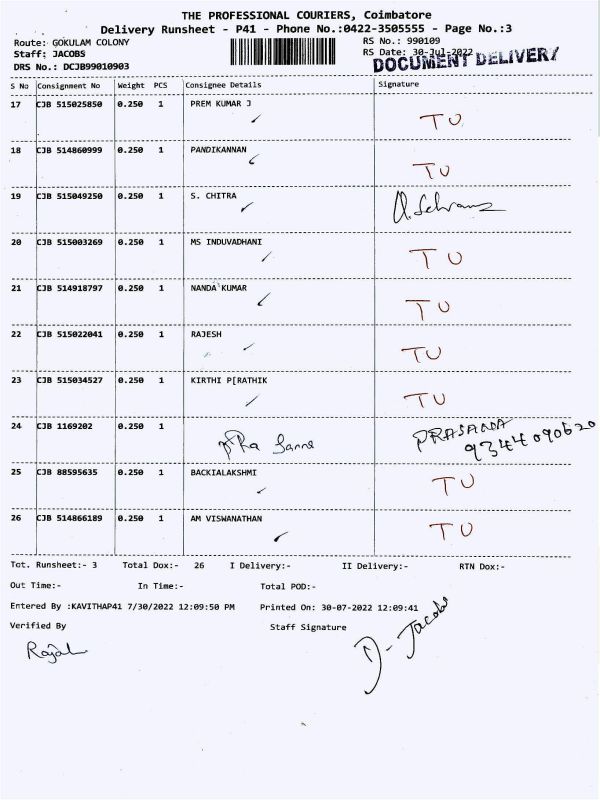 THE PROFESSIONAL COURIERS, Coimbatore
Delivery Runsheet - P41 - Phone No.:0422-3505555 - Page No.:3
Route: GOKULAM COLONY RS No.: 990109
Staff: JACOBS RS Date: 30-Jul-2022
DOCUMENT DELIVERY
DRS No.: DCJB99010903
S No Consignment No Weight PCS Consignee Details Signature
17 CJB 515025850 0.250 1 PREM KUMAR J TU
18 CJB 514860999 0.250 1 PANDIKANNAN TU
19 CJB 515049250 0.250 1 S. CHITRA
20 CJB 515003269 0.250 1 MS INDUVADHANI TU
21 CJB 514918797 0.250 1 NANDA KUMAR TU
22 CJB 515022041 0.250 1 RAJESH TU
23 CJB 515034527 0.250 1 KIRTHI P[RATHIK TU
24 CJB 1169202 0.250 1 PRASANA
9344090620
25 CJB 88595635 0.250 1 BACKIALAKSHMI TU
26 CJB 514866189 0.250 1 AM VISWANATHAN TU
Tot. Runsheet:- 3 Total Dox:- 26 I Delivery:- II Delivery:- RTN Dox:-
Out Time:- In Time:- Total POD:-
Entered By :KAVITHAP41 7/30/2022 12:09:50 PM Printed On: 30-07-2022 12:09:41
Verified By Staff Signature
D- Jacobs